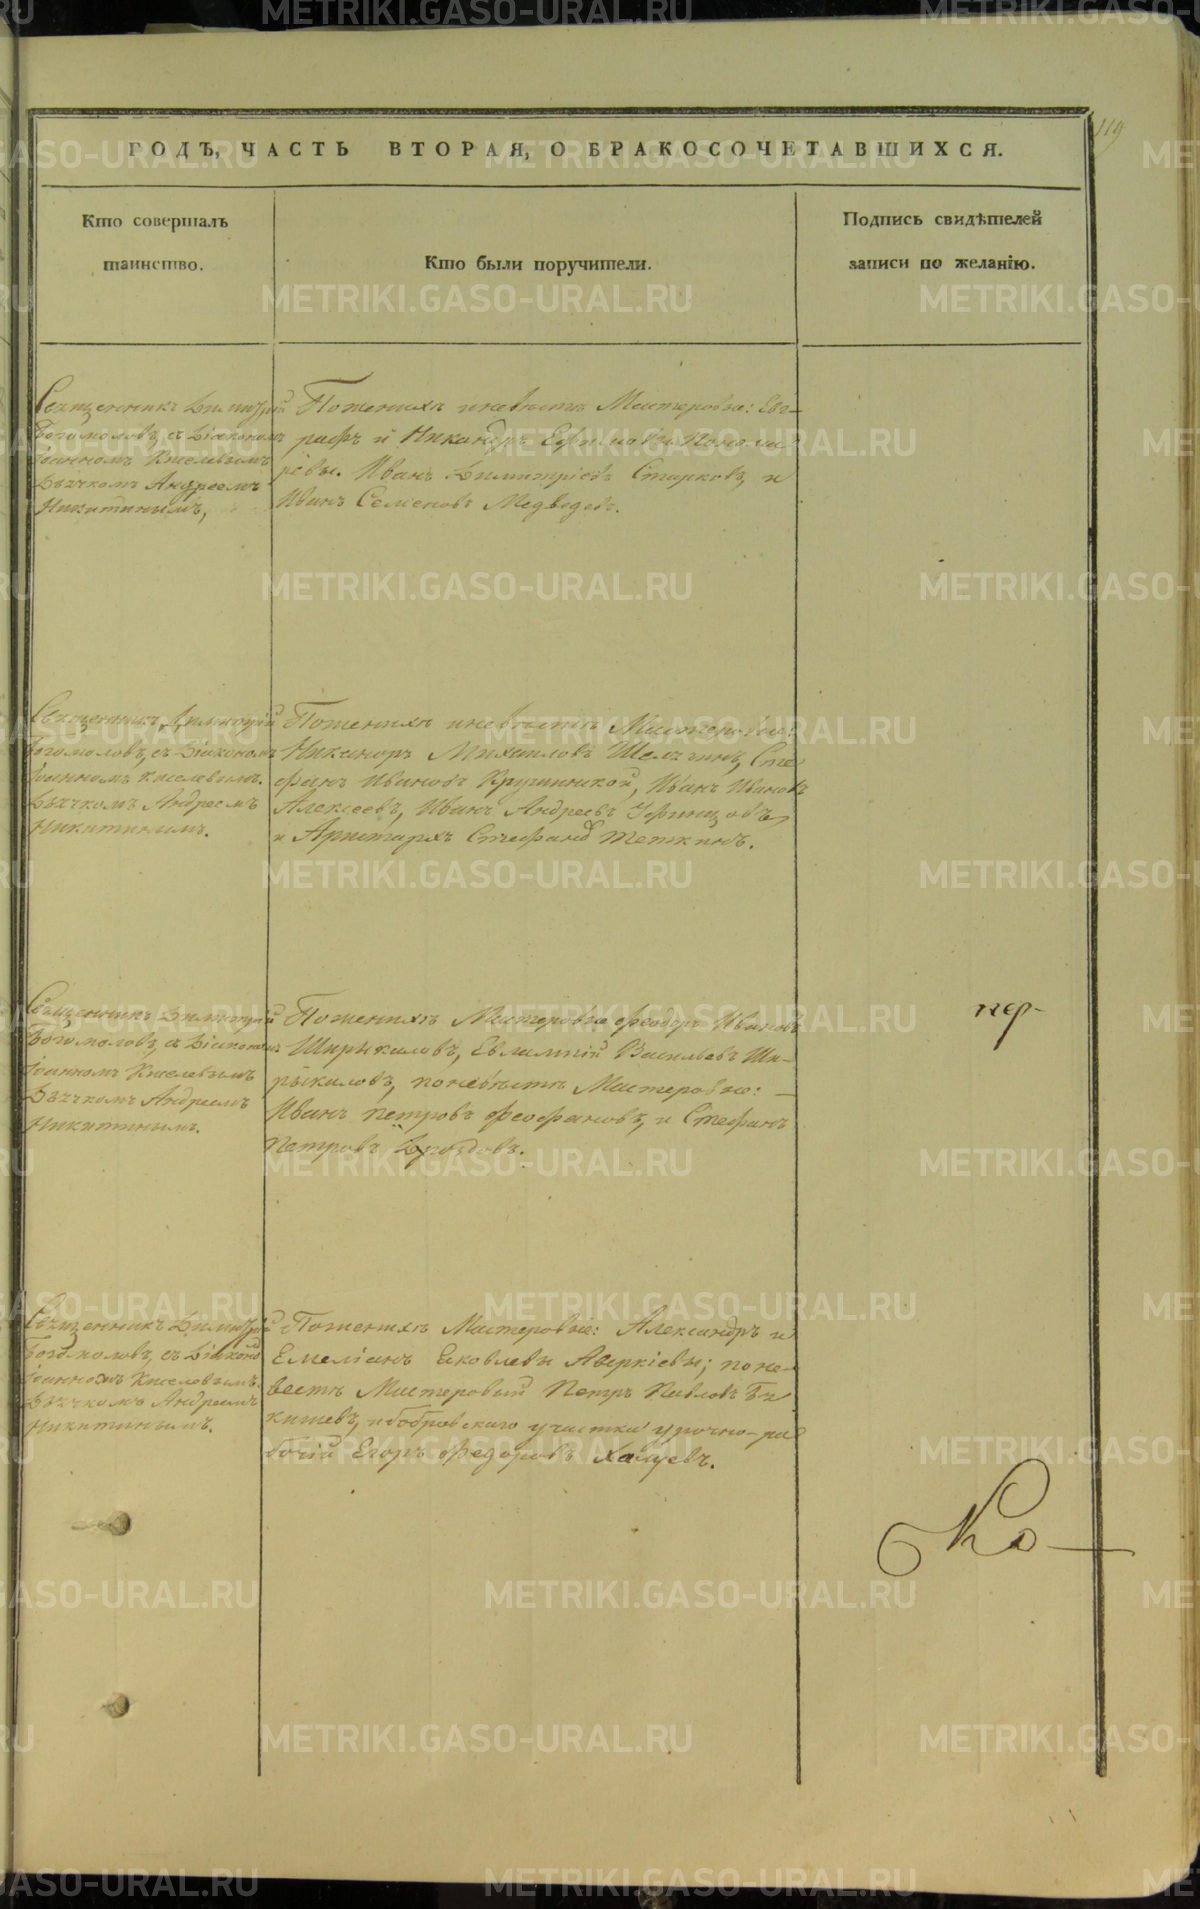 119
ГОДЪ, ЧАСТЬ ВТОРАЯ, О БРАКОСОЧЕТАВШИХСЯ.
Кто совершалъ
таинство.
Кто были поручители.
Подпись свидѣтелей
записи по желанію.
Священникъ Димитрій
Богомоловъ, съ Діакономъ
Іоанномъ Киселевымъ
Дьячкомъ Андреемъ
Никитинымъ,
Поженихѣ и невѣстѣ Мастеровые: Ев-
графъ и Никандръ Ефимовы Понома-
ревы. Иванъ Димитріевъ Старковъ, и
Иванъ Семеновъ Медведевъ.
Священникъ Димитрій
Богомоловъ, съ Діакономъ
Іоанномъ Киселевымъ.
Дьячкомъ Андреемъ
Никитинымъ.
Поженихѣ и невѣстѣ Мастеровые:
Никаноръ Михаиловъ Шелегинъ, Сте-
фанъ Ивановъ Кручинской, Иванъ Ивановъ
Алексеевъ, Иванъ Андреевъ Уфинцовъ,
и Аристархъ Стефановъ Теткинъ.
Священникъ Димитрій
Богомоловъ, съ Діакономъ
Іоанномъ Киселевымъ
Дьячкомъ Андреемъ
Никитинымъ.
Поженихѣ Мастеровые Феодоръ Ивановъ
Ширыкаловъ, Евлампій Васильевъ Ши-
рыкаловъ, поневѣстѣ Мастеровые:
Иванъ Петровъ Феофановъ, и Стефанъ
Петровъ Дроздовъ.
пер-
Священникъ Димитрій
Богомоловъ, съ Діакономъ
Іоанномъ Киселевымъ.
Дьячкомъ Андреемъ
Никитинымъ.
Поженихѣ Мастеровые: Александръ и
Емеліанъ Яковлевы Аверкіевы; поне-
вестѣ Мастеровый Петръ Павловъ Бе-
кишевъ, и бобровскаго участка урочно-ра-
бочій Егоръ Федоровъ Халуевъ.
Ко
METRIKI.GASO-URAL.RU